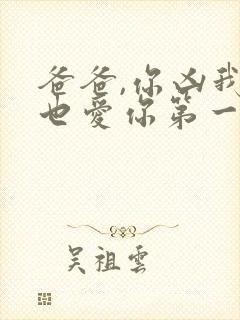 爸爸,你凶我
也爱你第一
吴祖雲